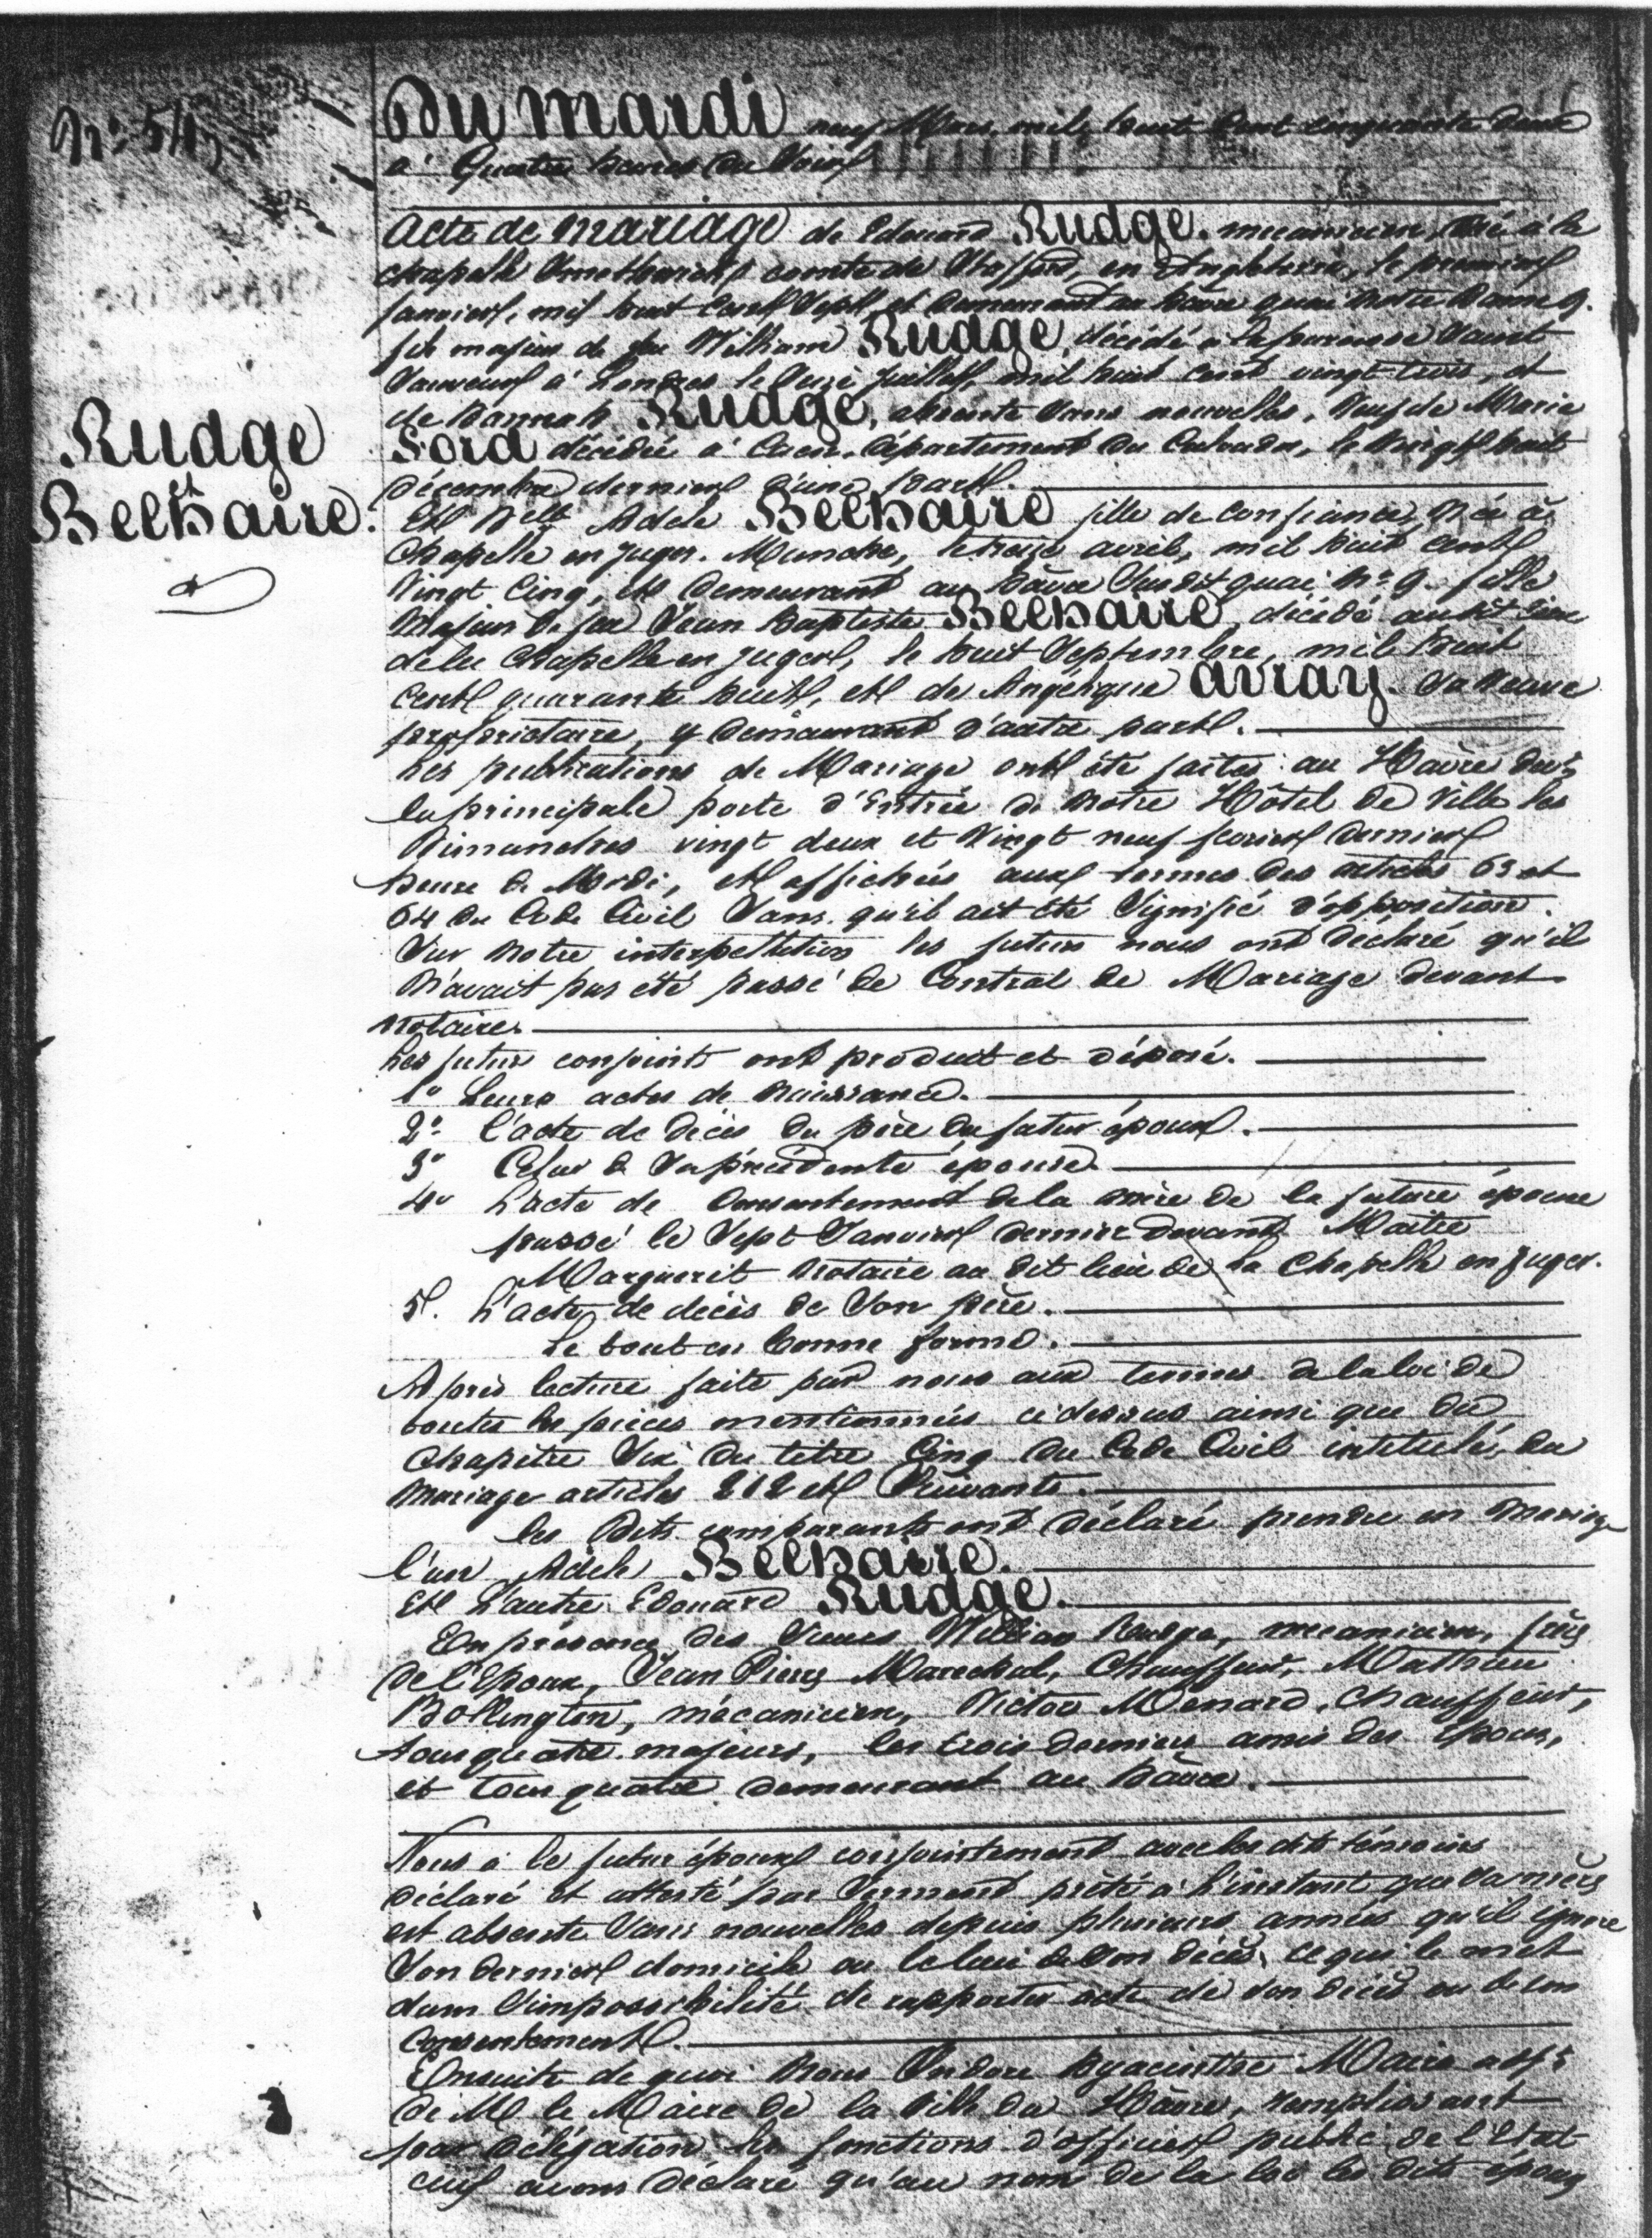 Du mardi neuf Mars mil huit Cent cinquante deux
à Quatre heures du Soir
Acte de mariage de Edouard Rudge. mecanicien, Né à la
chapelle Smethwick comté de Stafford, en Angleterre, le premier
Janvier, mil huit Cent Sept, et demeurant au hâvre quai Notre Dame 9.
fils majeur de feu William Rudge, décédé à la paroisse Saint
Sauveur à Londres le Juillet, mil huit cent vingt trois, et
de hannah Rudge, absente Sans nouvelles, Veuf de Marie
Ford décédée à Caen, département du Calvados, le Vingt huit
décembre dernier d'une part.
Rudge
et
Belhaire.
Et Delle Adele Belhaire fille de Confiance, Née à
Chapelle en Juger. Manche, le treize avril, mil huit cent
Vingt Cinq, et demeurant au hâvre Susdit quai No 9. fille
Majeur de feu Jean Baptiste Belhaire, décédé audit lieu
de la Chapelle en Juger, le huit Septembre, mil huit
Cent quarante huit, et de Angélique avray. Sa Veuve
proprietaire, y demeurant d'autre part.
Les publications de Mariage ont été faites au Hâvre devt
la principale porte d'Entrée de Notre Hôtel de Ville les
Dimanches vingt deux et Vingt neuf fevrier dernier
heure de Midi, et affichées aux termes des articles 63 et
64 du Code Civil Sans qu'il ait été Signifié d'opposition.
Sur Notre interpellation les futurs nous ont déclaré qu'il
N'avait pas été passé de Contrat de Mariage devant
notaire.
Les futurs conjoints ont produit et déposé.
1o Leurs actes de Naissance.
2o L'acte de décès du père du futur époux.
3o Celui de Sa précédente épouse.
4o L'acte de Consentement de la mère de la future épouse
passé le Sept Janvier dernier devant Maitre
Marguerit Notaire au dit lieu de La Chapelle en Juger.
5. L'acte de décès de Son père.
Le tout en bonne forme.
Après lecture faite par nous aux termes de la loi de
toutes les pièces mentionnées ci dessus ainsi que du
Chapitre Six du titre Cinq du Code Civil intitulé, du
Mariage articles 212 et Suivants.
les Dits comparants ont déclaré prendre en Mariage
l'un Adele Belhaire.
Et L'autre Edouard Rudge.
En présence des Sieurs William Rudge, mecanicien, frère
de l'Epoux, Jean Pierre Marechal, Chauffeur, Mathieu
Bollington, mécanicien, Victor Menard, Chauffeur,
tous quatre majeurs, les trois derniers amis des Epoux,
et tous quatre demeurant au hâvre.
Nous a le futur époux conjointement avec les dits témoins
déclaré et attesté par Serment prêté à l'instant que Sa mère
est absente Sans nouvelles depuis plusieurs années qu'il ignore
Son dernier domicile ou le lieu de Son décès, Ce qui le met
dans l'impossibilité de rapporter acte de son décès ou de son
Consentement.
Ensuite de quoi Nous Isidore hyacinthe Maire adjt
de M le Maire de la Ville du Hâvre, remplissant
par délégation les fonctions d'officier public de l'Etat
civil avons déclaré qu'au nom de la loi les dits époux